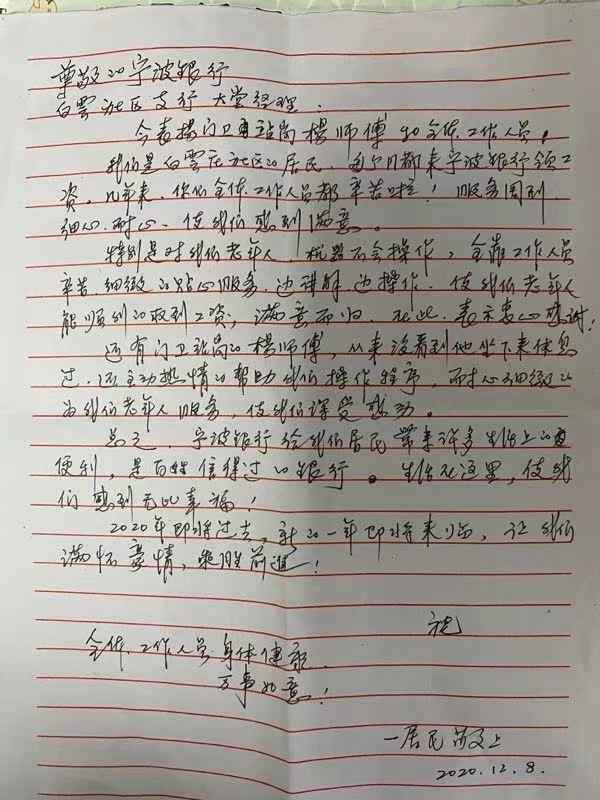 尊敬的宁波银行
白雲社区支行 大堂经理.
今表扬门卫站岗杨师傅和全体工作人员。
我们是白雲庄社区的居民,每个月都来宁波银行领工
资。几年来,你们全体工作人员都辛苦啦!服务周到.
细心.耐心.使我们感到满意。
特别是对我们老年人.机器不会操作,全靠工作人员
辛苦.细緻的贴心服务.边讲解边操作.使我们老年人
能顺利的收到工资,满意而归.在此.表示衷心感谢!
还有门卫站岗的楊师傅,从来没看到他坐下来休息
过.还主动热情的帮助我们操作程序,耐心细緻的
为我们老年人服务,使我们深受感动。
总之.宁波银行给我们居民带来许多生活上的
便利,是百姓信得过的银行。生活在这里,使我
们感到无比幸福!
2020年即将过去,新的一年即将来临,让我们
满怀豪情,乘胜前進!
祝
全体.工作人员.身体健康.
万事如意!
一居民敬上
2020.12.8.